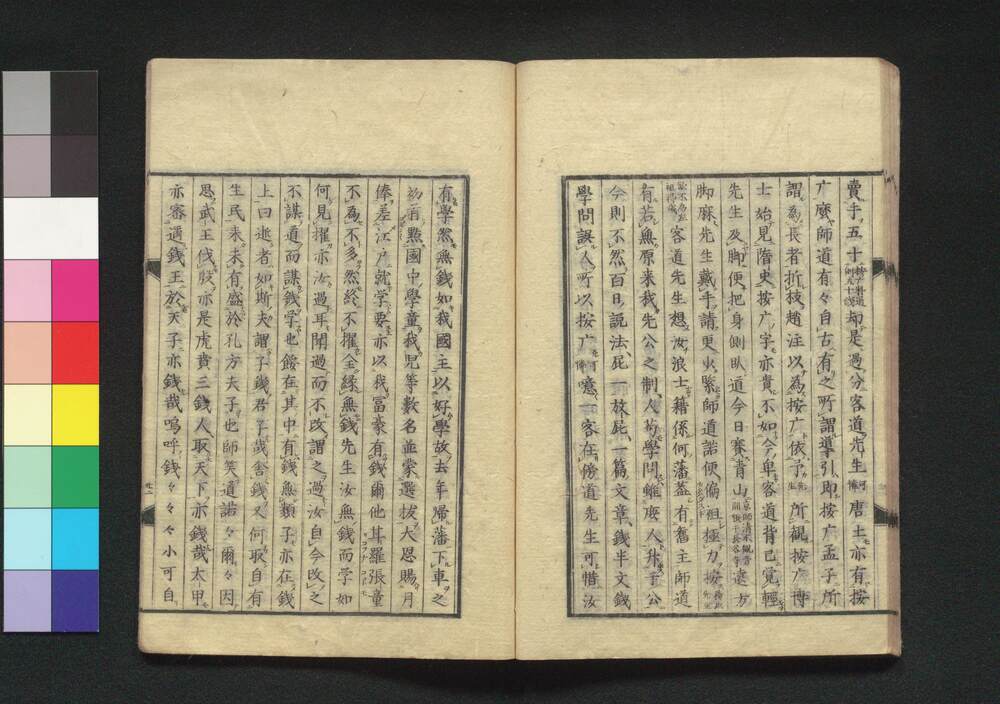 賣手五十却是過分客道先生唐土亦有按
广麼師道有々自古有之所謂導引即按广孟子所
謂為長者折技趙注以為按广依予所観按广博
士始見隋史按广字亦貴不如今卑客道背已覚軽
先生及脚便把身側臥道今日賽青山遠方
脚麻先生戴手請更火緊師道諾便偏袒極力按
客道先生想汝浪士籍係何藩蓋有舊主師道
有若無原来我先公之制人苟學問雖庶人升于公
今則不然百日説法屁一放屁一篇文章錢半文錢
學問誤人所以按广噫一客在傍道先生可惜汝
有學然無錢如我國主以好學故去年帰藩下車之
初首點國中學童我児等数名並蒙選拔大恩賜月
俸差江戸就学要亦以我富豪有錢爾他其羅張童
不為不多然終不擢全縁無錢先生汝無錢而学如
何見擢亦汝過耳聞過而不改謂之過汝自今改之
不謀道而謀錢学也餒在其中有錢無類子亦在錢
上曰逝者如斯夫謂子錢君子哉舍錢又何取自有
生民未未有盛於孔方夫子也師笑道諾々爾々因
思武王伐殷亦是虎賁三錢人取天下亦錢哉太甲
亦審過錢王於天子亦錢哉嗚呼錢々々々小可自